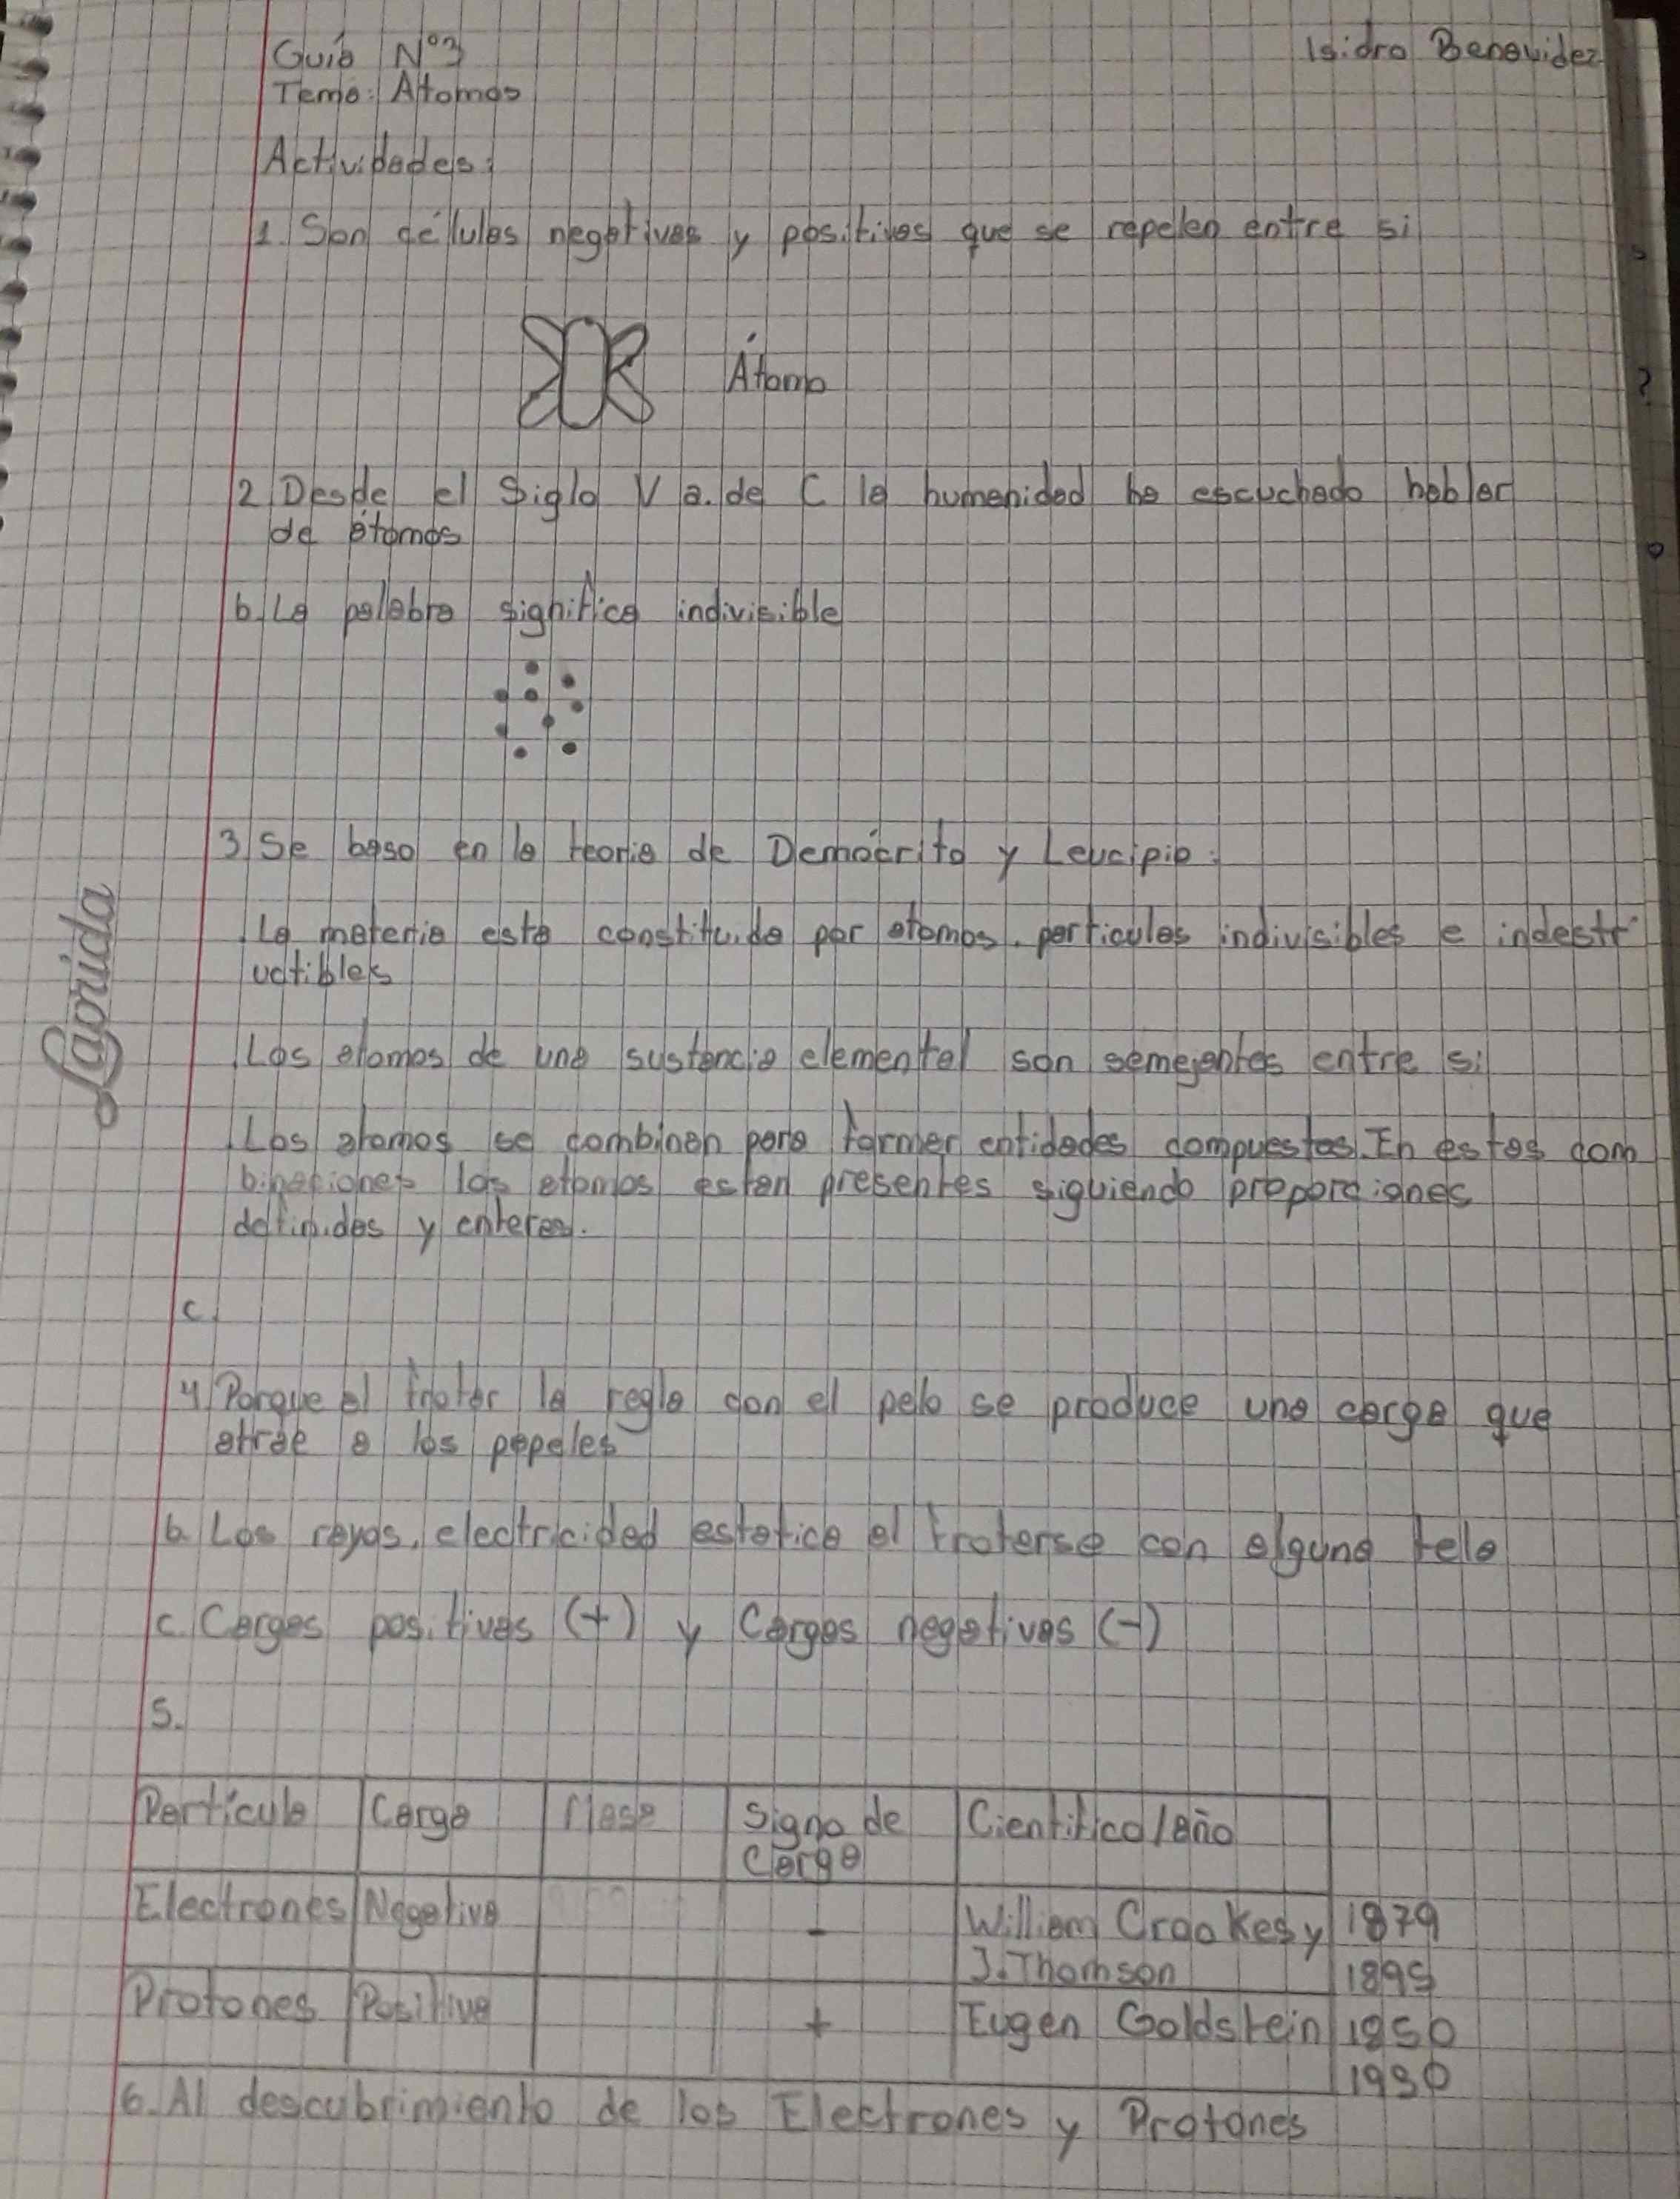 Guía N°3
Isidro Benavidez
Tema: Atomos
Actividades:
1. Son células negativas y positivas que se repelen entre si
Átomo
2 Desde el Siglo V a. de C la humanidad ha escuchado hablar
de átomos
b. La palabra significa indivisible
3 Se baso en la teoria de Demócrito y Leucipio:
. La materia esta constituida por atomos, particulas indivisibles e indestr
uctibles
. Los atomos de una sustancia elemental son semejantes entre si
. Los atomos se combinan para formar entidades compuestas. En estas com
binaciones los atomos estan presentes siguiendo proporciones
definidas y enteras.
c.
4 Porque al frotar la regla con el pelo se produce una carga que
atrae a los papeles
b. Los rayos, electricidad estatica al frotarse con alguna tela
c. Cargas positivas (+) y Cargas negativas (-)
5.
Partícula Carga Masa Signo de Cientifico/año
Carga
Electrones Negativa - William Crookes y 1879
J. Thomson 1895
Protones Positiva + Eugen Goldstein 1850
1930
6. Al descubrimiento de los Electrones y Protones
Laprida